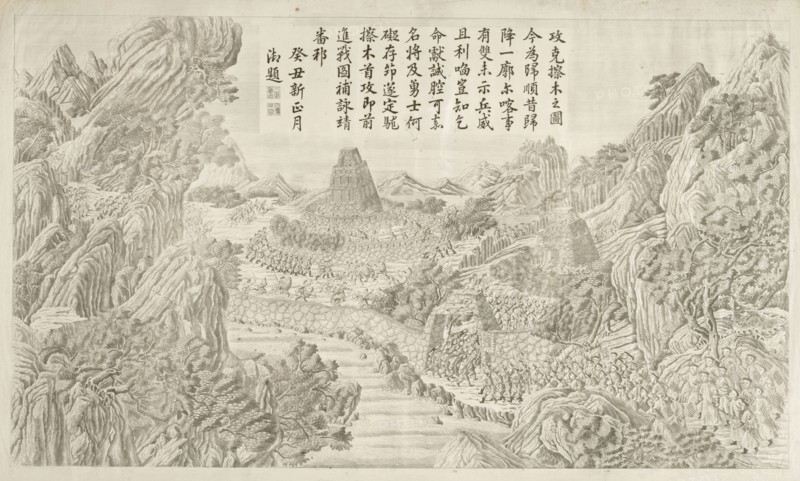 攻克擦木之圖
今為歸順昔歸
降一廓尔喀事
有雙未示兵威
且利喻豈知乞
命獻誠腔可嘉
名將及勇士何
礙存遂定駹
擦木首攻即前
進戰圖補詠靖
番邦
癸丑新正月
御題